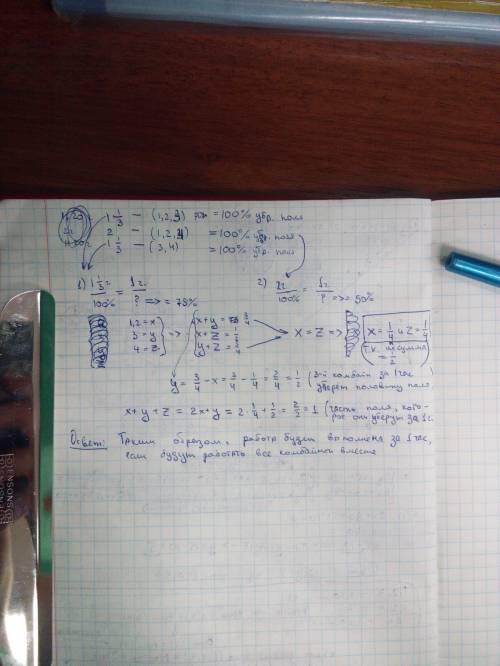 1 1/3 — (1,2,3) = 100% убр. поля
2 — (1,2,4) = 100% убр. поля
1 1/3 — (3,4) = 100% убр. поля
1) 1 1/3 / 100% = 1г. / ? => = 75%
2) 2г. / 100% = 1г. / ? => = 50%
1,2 = x
3 = y
4 = z
=> x+y = 3/4
x+z = 1/2
y+z = 3/4
x = z => x = 1/4 и z = 1/4
т.к. их сумма = 1/2
y = 3/4 - x = 3/4 - 1/4 = 2/4 = 1/2 (3-й комбайн за 1 час уберет половину поля)
x+y+z = 2x+y = 2·1/4+1/2 = 2/2 = 1 (часть поля, которое они уберут за 1г.
Ответ: Таким образом, работа будет выполнена за 1 час,
если будут работать все комбайны вместе